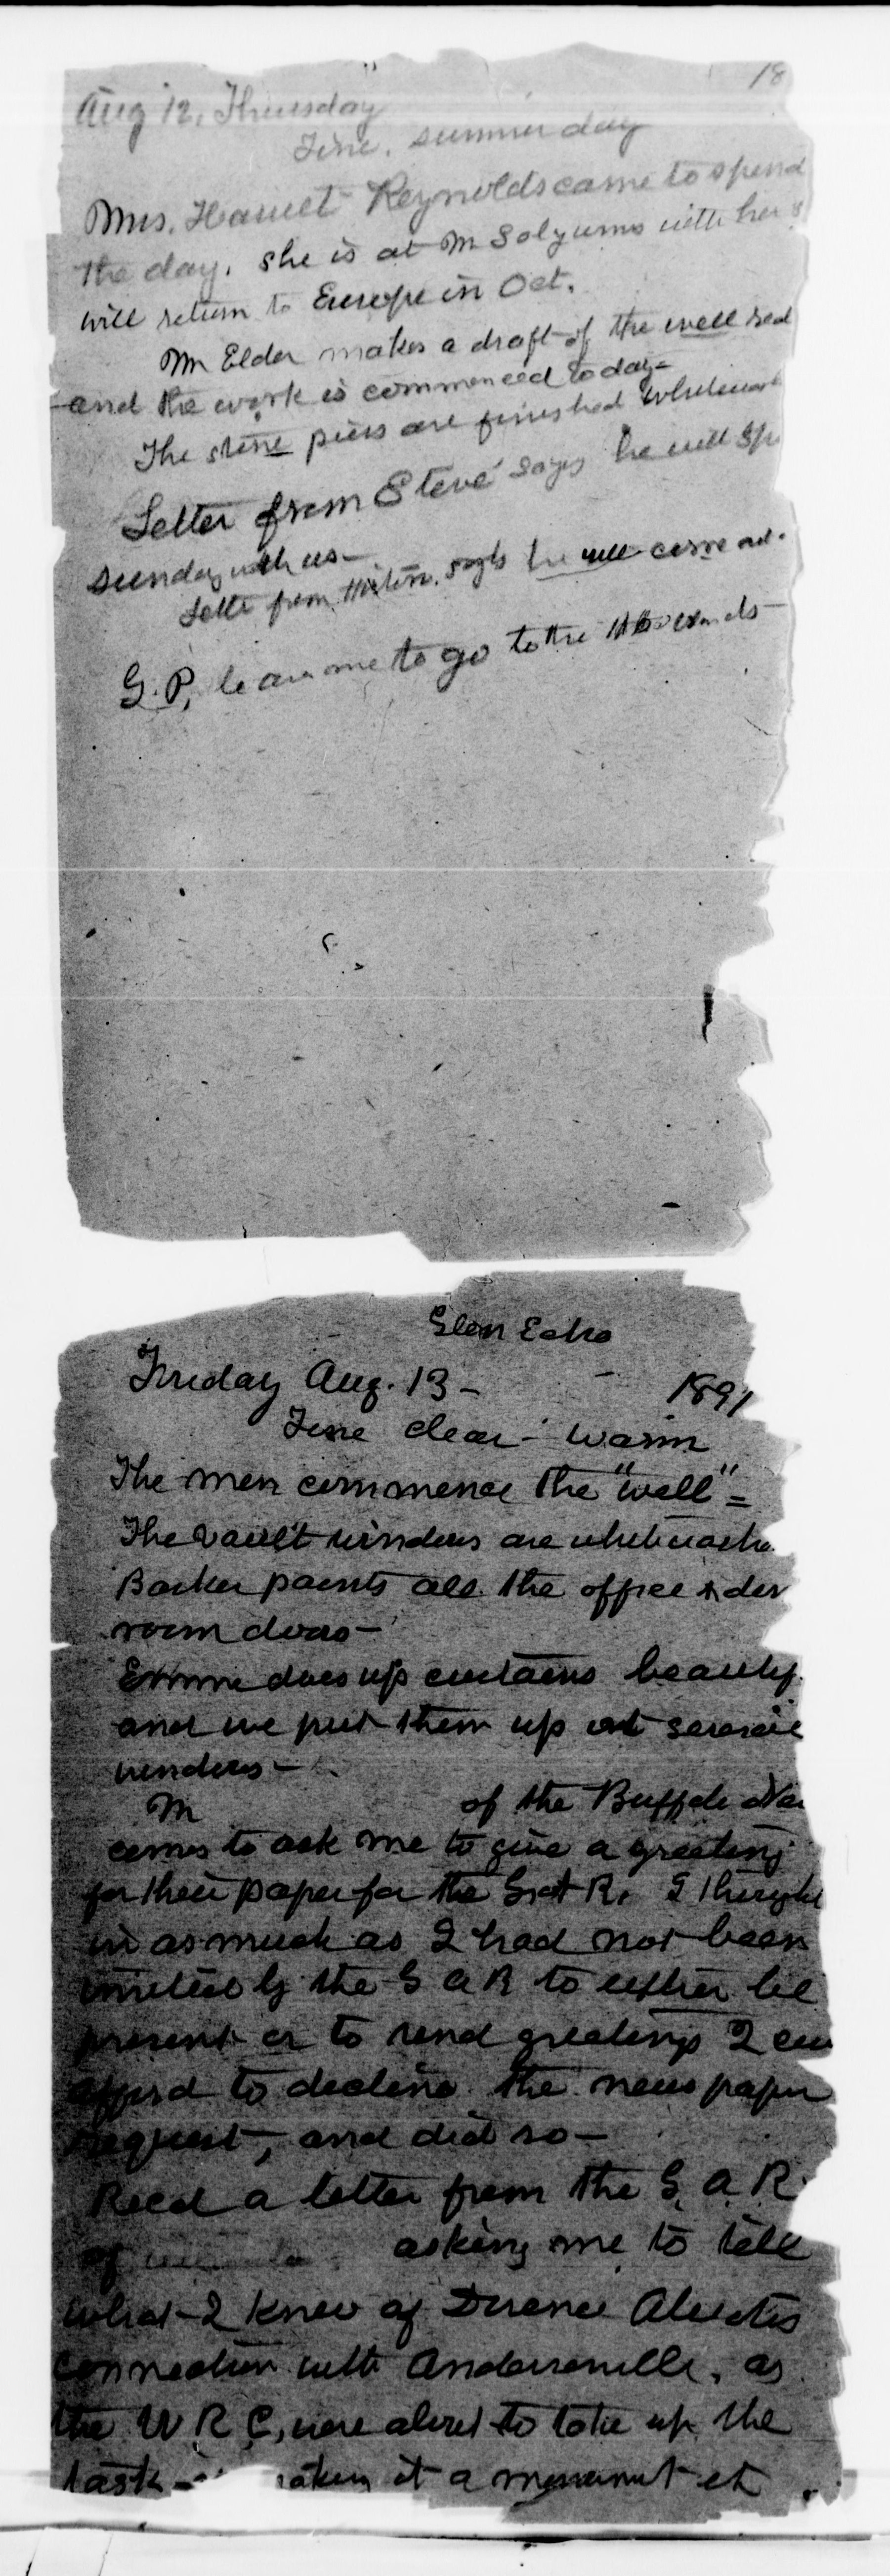 18
Aug 12, Thursday
Fine. summer day
Mrs. Harriet Reynolds came to spend
the day. she is at M Solyums with her
will return to Europe in Oct.
Mr Elder makes a draft of the well
and the work is commenced today-
The stone piers are finished
Letter from Steve says he will
Sunday with us-
Letter from says he will come
G. P. me to go to the
Glen Echo
Friday Aug. 13 - 1897
Fine clear - warm
The men commence the "well" =
The vault windows are
Barker paints all the office
room doors-
does up curtains
and we put them up at
windows -
M of the Buffalo
comes to ask me to give a greeting
for their paper for the I
in as much as I had not been
by the G A R to either be
present or to send greetings I
afford to decline the news paper
request, and did so -
Recd a letter from the G. A. R.
of asking me to tell
what I knew of
connection with Andersonville, as
the W. R. C, were about to take up the
task it a